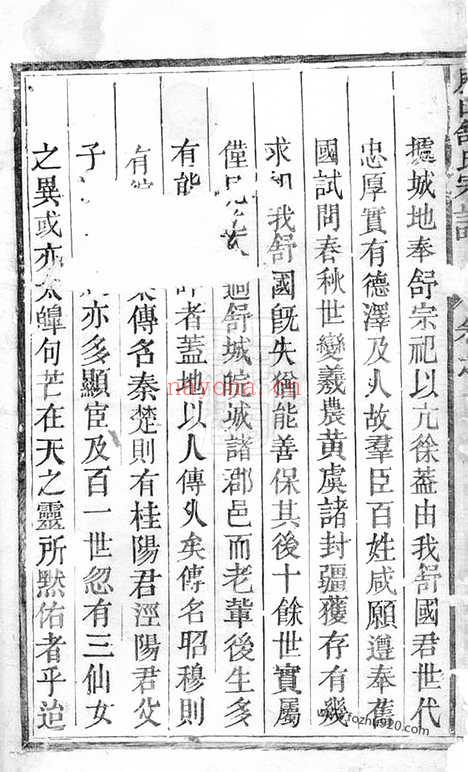 據城地奉舒宗祀以亢徐葢由我舒國君世代
忠厚實有德澤及人故羣臣百姓咸願遵奉舊
國試問春秋世變羲農黄虞諸封疆獲存有幾
求 我舒國旣失猶能善保其後十餘世實屬
僅 過舒城皖城諸郡邑而老輩後生多
有能 者葢地以人傳久矣傳名昭穆則
有 傳名秦楚則有桂陽君涇陽君父
子 亦多顯宦及百一世忽有三仙女
之異或亦太皥句芒在天之靈所黙佑者乎迨
氏宗譜
nayona.cn
www.fozhu920.com